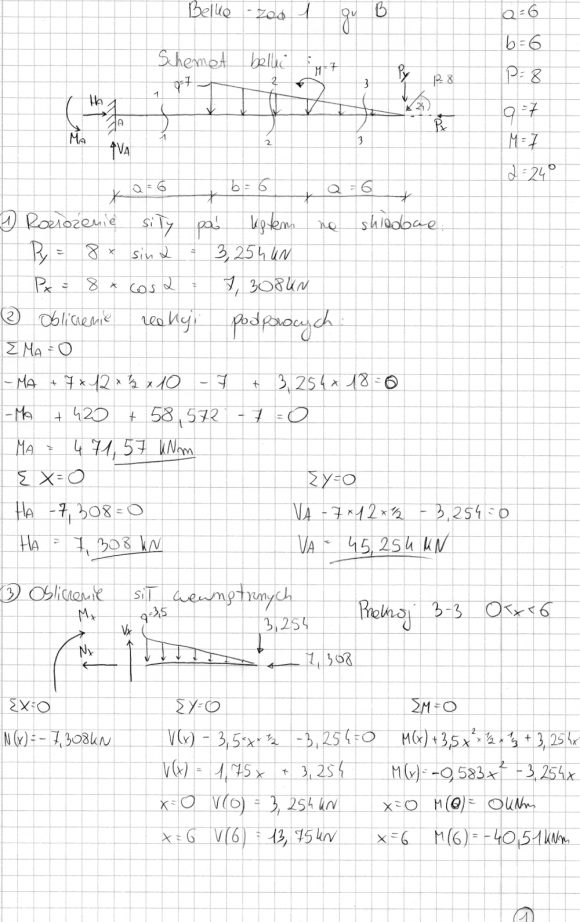 Belka - zad 1 gr B
a = 6
b = 6
P = 8
q = 7
M = 7
α = 24°
Schemat belki :
q=7
M=7
Py
P=8
24
Px
HA
MA
A
VA
1
1
2
2
3
3
a = 6
b = 6
a = 6
① Rozłożenie siły pod kątem na składowe.
Py = 8 × sin α = 3,254 kN
Px = 8 × cos α = 7,308 kN
② Obliczenie reakcji podporowych:
Σ MA = 0
-MA + 7×12×½×10 - 7 + 3,254×18 = 0
-MA + 420 + 58,572 - 7 = 0
MA = 471,57 kNm
Σ X = 0
Σ Y = 0
HA - 7,308 = 0
VA - 7×12×½ - 3,254 = 0
HA = 7,308 kN
VA = 45,254 kN
③ Obliczenie sił wewnętrznych
Przekrój 3-3 0<x<6
Mx
q=3,5
Vx
Nx
3,254
7,308
ΣX=0
ΣY=0
ΣM=0
N(x) = -7,308kN
V(x) - 3,5×x×½ - 3,254=0
M(x)+3,5x²×½×⅓ + 3,254x
V(x) = 1,75x + 3,254
M(x) = -0,583x² - 3,254x
x=0 V(0) = 3,254 kN
x=0 M(0) = 0kNm
x=6 V(6) = 13,75kN
x=6 M(6) = -40,51kNm
1